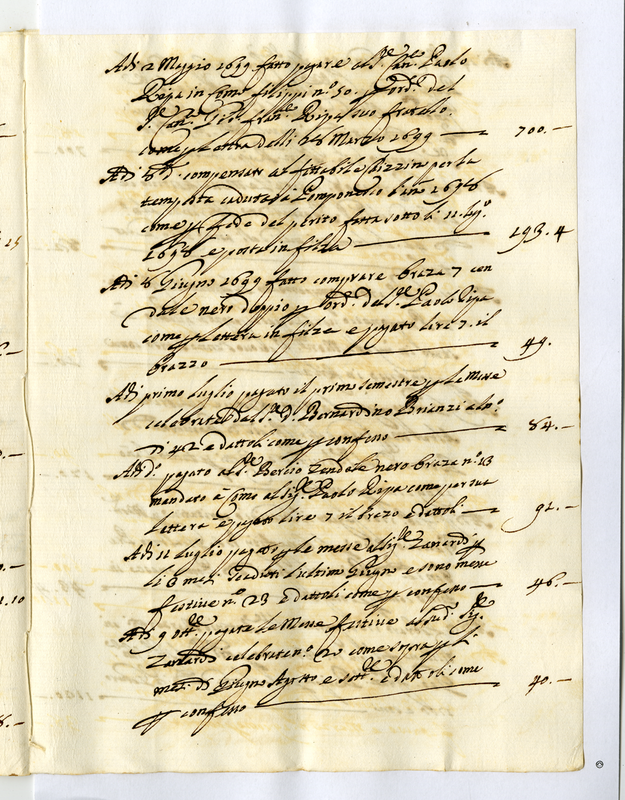 Adi 2 Maggio 1699 fatto pagare al Sr. Can.co Paolo
Ripa in Como filippi n.o 50. p ord.e del
Sr. Can.co fran.co Ripa suo fratello
come p lettra delli 68 Marzo 1699 — 700.—
Adi 8 d.o compensato al fittabile per la
tempesta caduta
come p fede del perito fatta sotto li 11 lug.o
1698 e posta in filza — 193.4
Adi 8 Giugno 1699 fatto comprare braza 7 cen
dale nero doppio p ord.e del Sr. Paolo Ripa
come p lettera in filza e pagato lire 7. il
brazzo — 49.
Adi primo luglio pagato il primo semestre p le Messe
celebrate dal Sr. D. Bernardino Brienzi al n.o
di 42 e dattoli come p confesso — 84.—
Adi d.o pagato al Sr. Zendale nero braza n.o 13
mandato a Como al Sig.r Paolo Ripa come per sua
lettera e pagato lire 7 il brazo e dattoli — 91.—
Adi 11 luglio pagato p le messe al Sig.r Zanardi p
li 6 mesi scaduti l'ultimo Giugno e sono messe
festive n.o 23 e dattoli come p confesso — 46.—
Adi 9 ott.e pagate le Messe festive al sud.o Sig.r
Zanardi celebrate n.o 20 come sopra p li
mesi di Giugno Agosto e sett.e e dattoli come
p confesso — 40.—